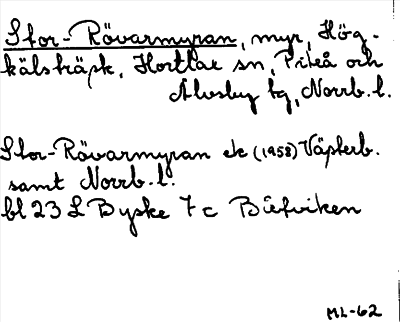 Stor-Rövarmyran, myr, Hög-
kälsträsk, Hortlax sn, Piteå och
Älvsby tg, Norrb. l.
Stor-Rövarmyran ek (1958) Västerb.
samt Norrb. l.
bl 23 L Byske 7 c Biefviken
ML-62